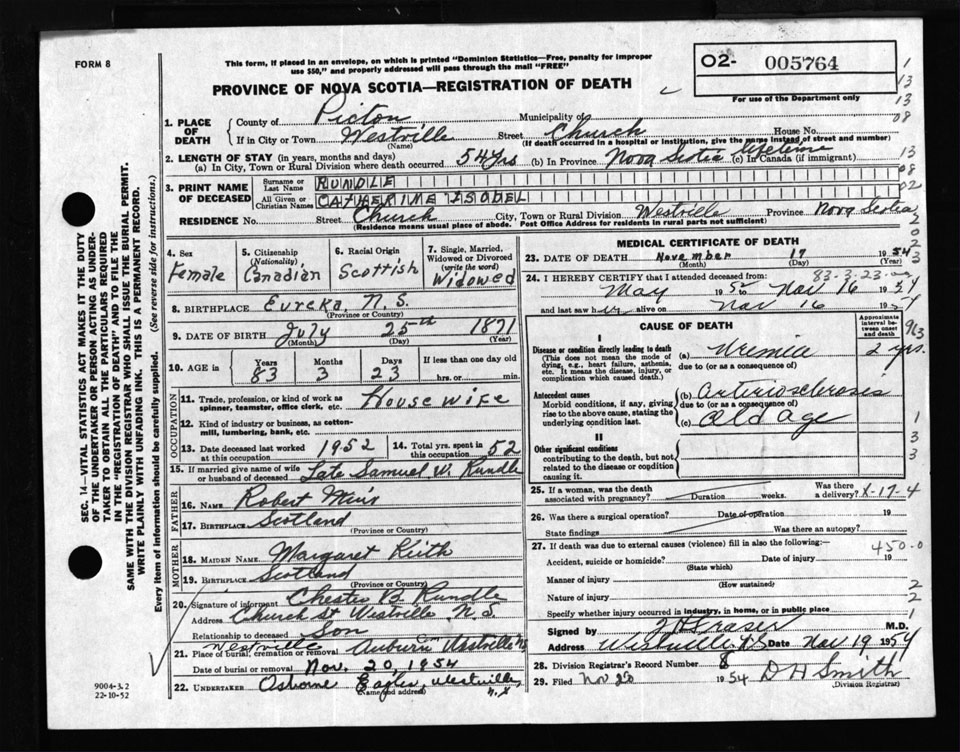 FORM 8
This form, if placed in an envelope, on which is printed "Dominion Statistics—Free, penalty for improper
use $50," and properly addressed will pass through the mail "FREE"
O2- 005764
For use of the Department only
PROVINCE OF NOVA SCOTIA—REGISTRATION OF DEATH
1. PLACE OF DEATH County of Picton Municipality of
If in City or Town Westville Street Church House No.
(Name) (If death occurred in a hospital or institution, give the name instead of street and number)
2. LENGTH OF STAY (in years, months and days)
(a) In City, Town or Rural Division where death occurred 54 yrs (b) In Province Nova Scotia lifetime (c) In Canada (if immigrant)
3. PRINT NAME OF DECEASED Surname or Last Name RUNDLE
All Given or Christian Names CATHERINE ISOBEL
RESIDENCE No. Street Church City, Town or Rural Division Westville Province Nova Scotia
(Residence means usual place of abode. Post Office Address for residents in rural parts not sufficient)
4. Sex Female
5. Citizenship (Nationality) Canadian
6. Racial Origin Scottish
7. Single, Married, Widowed or Divorced (write the word) Widowed
8. BIRTHPLACE Eureka, N.S.
(Province or Country)
9. DATE OF BIRTH July 25th 1871
(Month) (Day) (Year)
10. AGE in Years 83 Months 3 Days 23 If less than one day old hrs. or min.
OCCUPATION
11. Trade, profession, or kind of work as spinner, teamster, office clerk, etc. Housewife
12. Kind of industry or business, as cotton-mill, lumbering, bank, etc.
13. Date deceased last worked at this occupation 1952
14. Total yrs. spent in this occupation 52
15. If married give name of wife or husband of deceased Late Samuel W. Rundle
FATHER
16. NAME Robert Weir
17. BIRTHPLACE Scotland
(Province or Country)
MOTHER
18. MAIDEN NAME Margaret Keith
19. BIRTHPLACE Scotland
(Province or Country)
20. Signature of informant Chester B Rundle
Address Church St Westville N.S
Relationship to deceased Son
21. Place of burial, cremation or removal Westville Auburn Cem Westville N.S
Date of burial or removal Nov. 20, 1954
22. UNDERTAKER Osborne Eagles, Westville, N.S
(Name and address)
MEDICAL CERTIFICATE OF DEATH
23. DATE OF DEATH November 17 1954
(Month) (Day) (Year)
83-3-23
24. I HEREBY CERTIFY that I attended deceased from:
May 1952 Nov 16 1954
and last saw her alive on Nov 16 1954
CAUSE OF DEATH
Approximate interval between onset and death
I
Disease or condition directly leading to death (a) Uremia 2 yrs.
(This does not mean the mode of dying, e.g., heart failure, asthenia, etc. It means the disease, injury, or complication which caused death.)
due to (or as a consequence of)
Antecedent causes (b) Arteriosclerosis
Morbid conditions, if any, giving rise to the above cause, stating the underlying condition last.
due to (or as a consequence of)
(c) Old Age
II
Other significant conditions
contributing to the death, but not related to the disease or condition causing it.
25. If a woman, was the death associated with pregnancy? Duration weeks. Was there a delivery? X-17-4
26. Was there a surgical operation? Date of operation 19
State findings Was there an autopsy?
27. If death was due to external causes (violence) fill in also the following:— 450-0
Accident, suicide or homicide? Date of injury 19
(State which)
Manner of injury
(How sustained)
Nature of injury
Specify whether injury occurred in industry, in home, or in public place
Signed by J H Fraser M.D.
Address Westville, N.S Date Nov 19 1954
28. Division Registrar's Record Number 8
29. Filed Nov 20 1954 D H Smith
(Division Registrar)
SEC. 14—VITAL STATISTICS ACT MAKES IT THE DUTY
OF THE UNDERTAKER OR PERSON ACTING AS UNDER-
TAKER TO OBTAIN ALL THE PARTICULARS REQUIRED
IN THE "REGISTRATION OF DEATH" AND TO FILE THE
SAME WITH THE DIVISION REGISTRAR WHO SHALL ISSUE THE BURIAL PERMIT.
WRITE PLAINLY WITH UNFADING INK. THIS IS A PERMANENT RECORD.
Every item of information should be carefully supplied. (See reverse side for instructions.)
9004-3.2
22-10-52
1
13
13
08
13
08
02
2
0
2
3
963
1
3
3
2
2
1